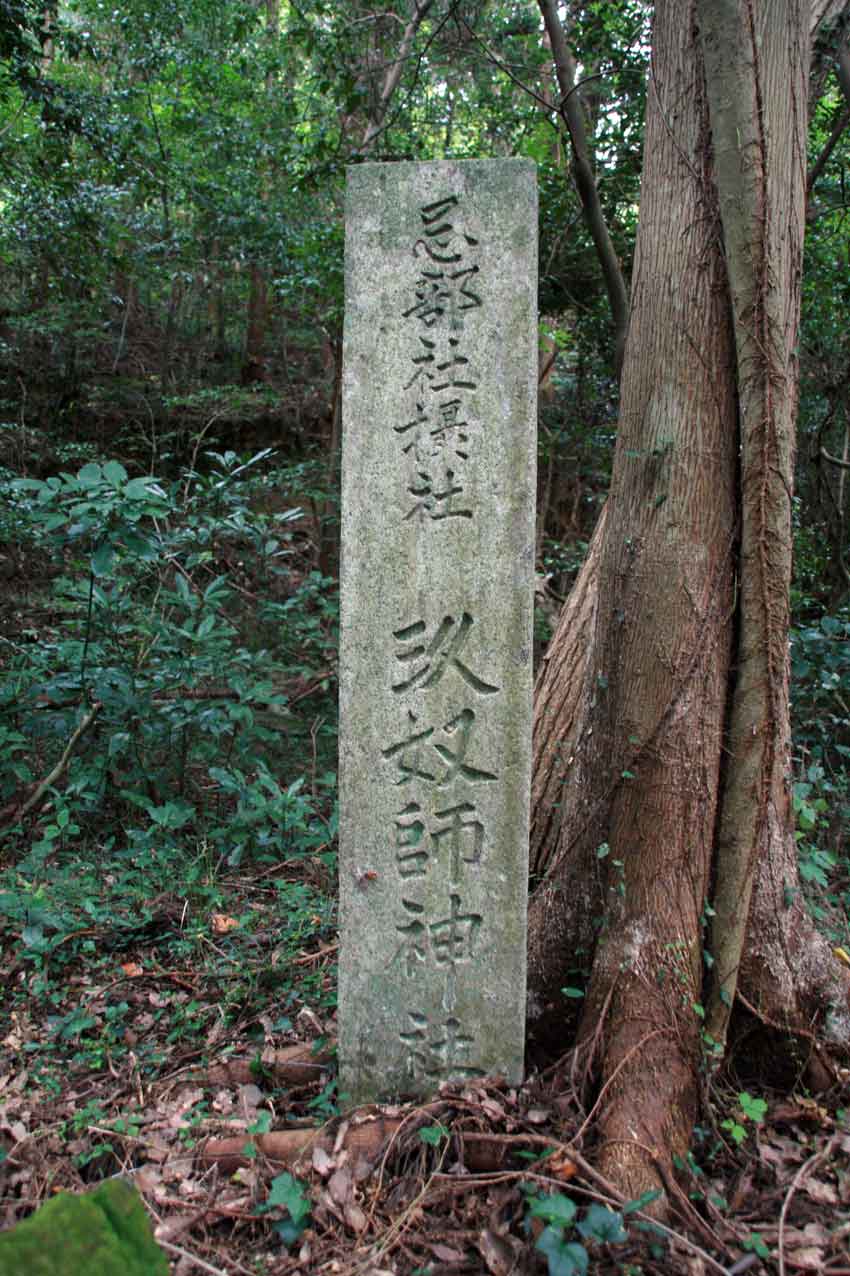 忌部社摂社 玖奴師神社